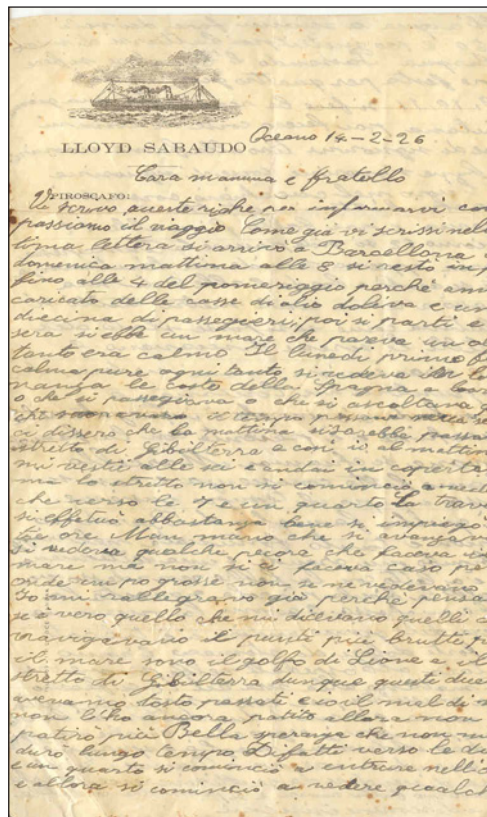 LLOYD SABAUDO
Oceano 14-2-26
Cara mamma e fratello
PIROSCAFO:
Vi scrivo queste righe per informarvi co
passiamo il viaggio Come già vi scrissi nel
tima lettera si arrivò a Barcellona
domenica mattina alle 8 si restò in p
fino alle 4 del pomeriggio perchè
caricato delle casse di olio doliva e un
diecina di passegieri, poi si partì e
sera si ebbe un mare che pareva un
tanto era calmo Il lunedì primo
calma pure ogni tanto si vedeva in lo
nanza le coste della Spagna a bo
o che si passegiava o che si ascoltava
che il tempo
ci dissero che la mattina si sarebbe passa
stretto di Gibilterra e così io al mattin
mi vestii alle sei e andai in coperta
ma lo stretto non si cominciò a
che verso le 7 e un quarto La trav
si effetuò abbastanza bene si impiegò
tre ore Man mano che si avanzav
si vedeva qualche pecora che faceva
mare ma non si ci faceva caso pe
onde un po grosse non se ne vedevano
Io mi rallegravo già perchè pensa
se è vero quello che mi dicevano quelli
navigavano il punti più brutti p
il mare sono il golfo di Lione e il
stretto di Gibilterra dunque questi due
avevamo tosto passati e io il mal di
non l'ho ancora patito allora non
patirò più Bella speranza che non
durò lungo tempo Difatti verso le di
e un quarto si cominciò a entrare nell
e allora si cominciò a vedere qualch